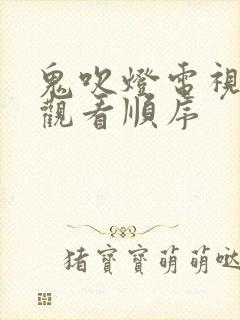 鬼吹燈電視
觀看順序
猪寶寶萌萌噠